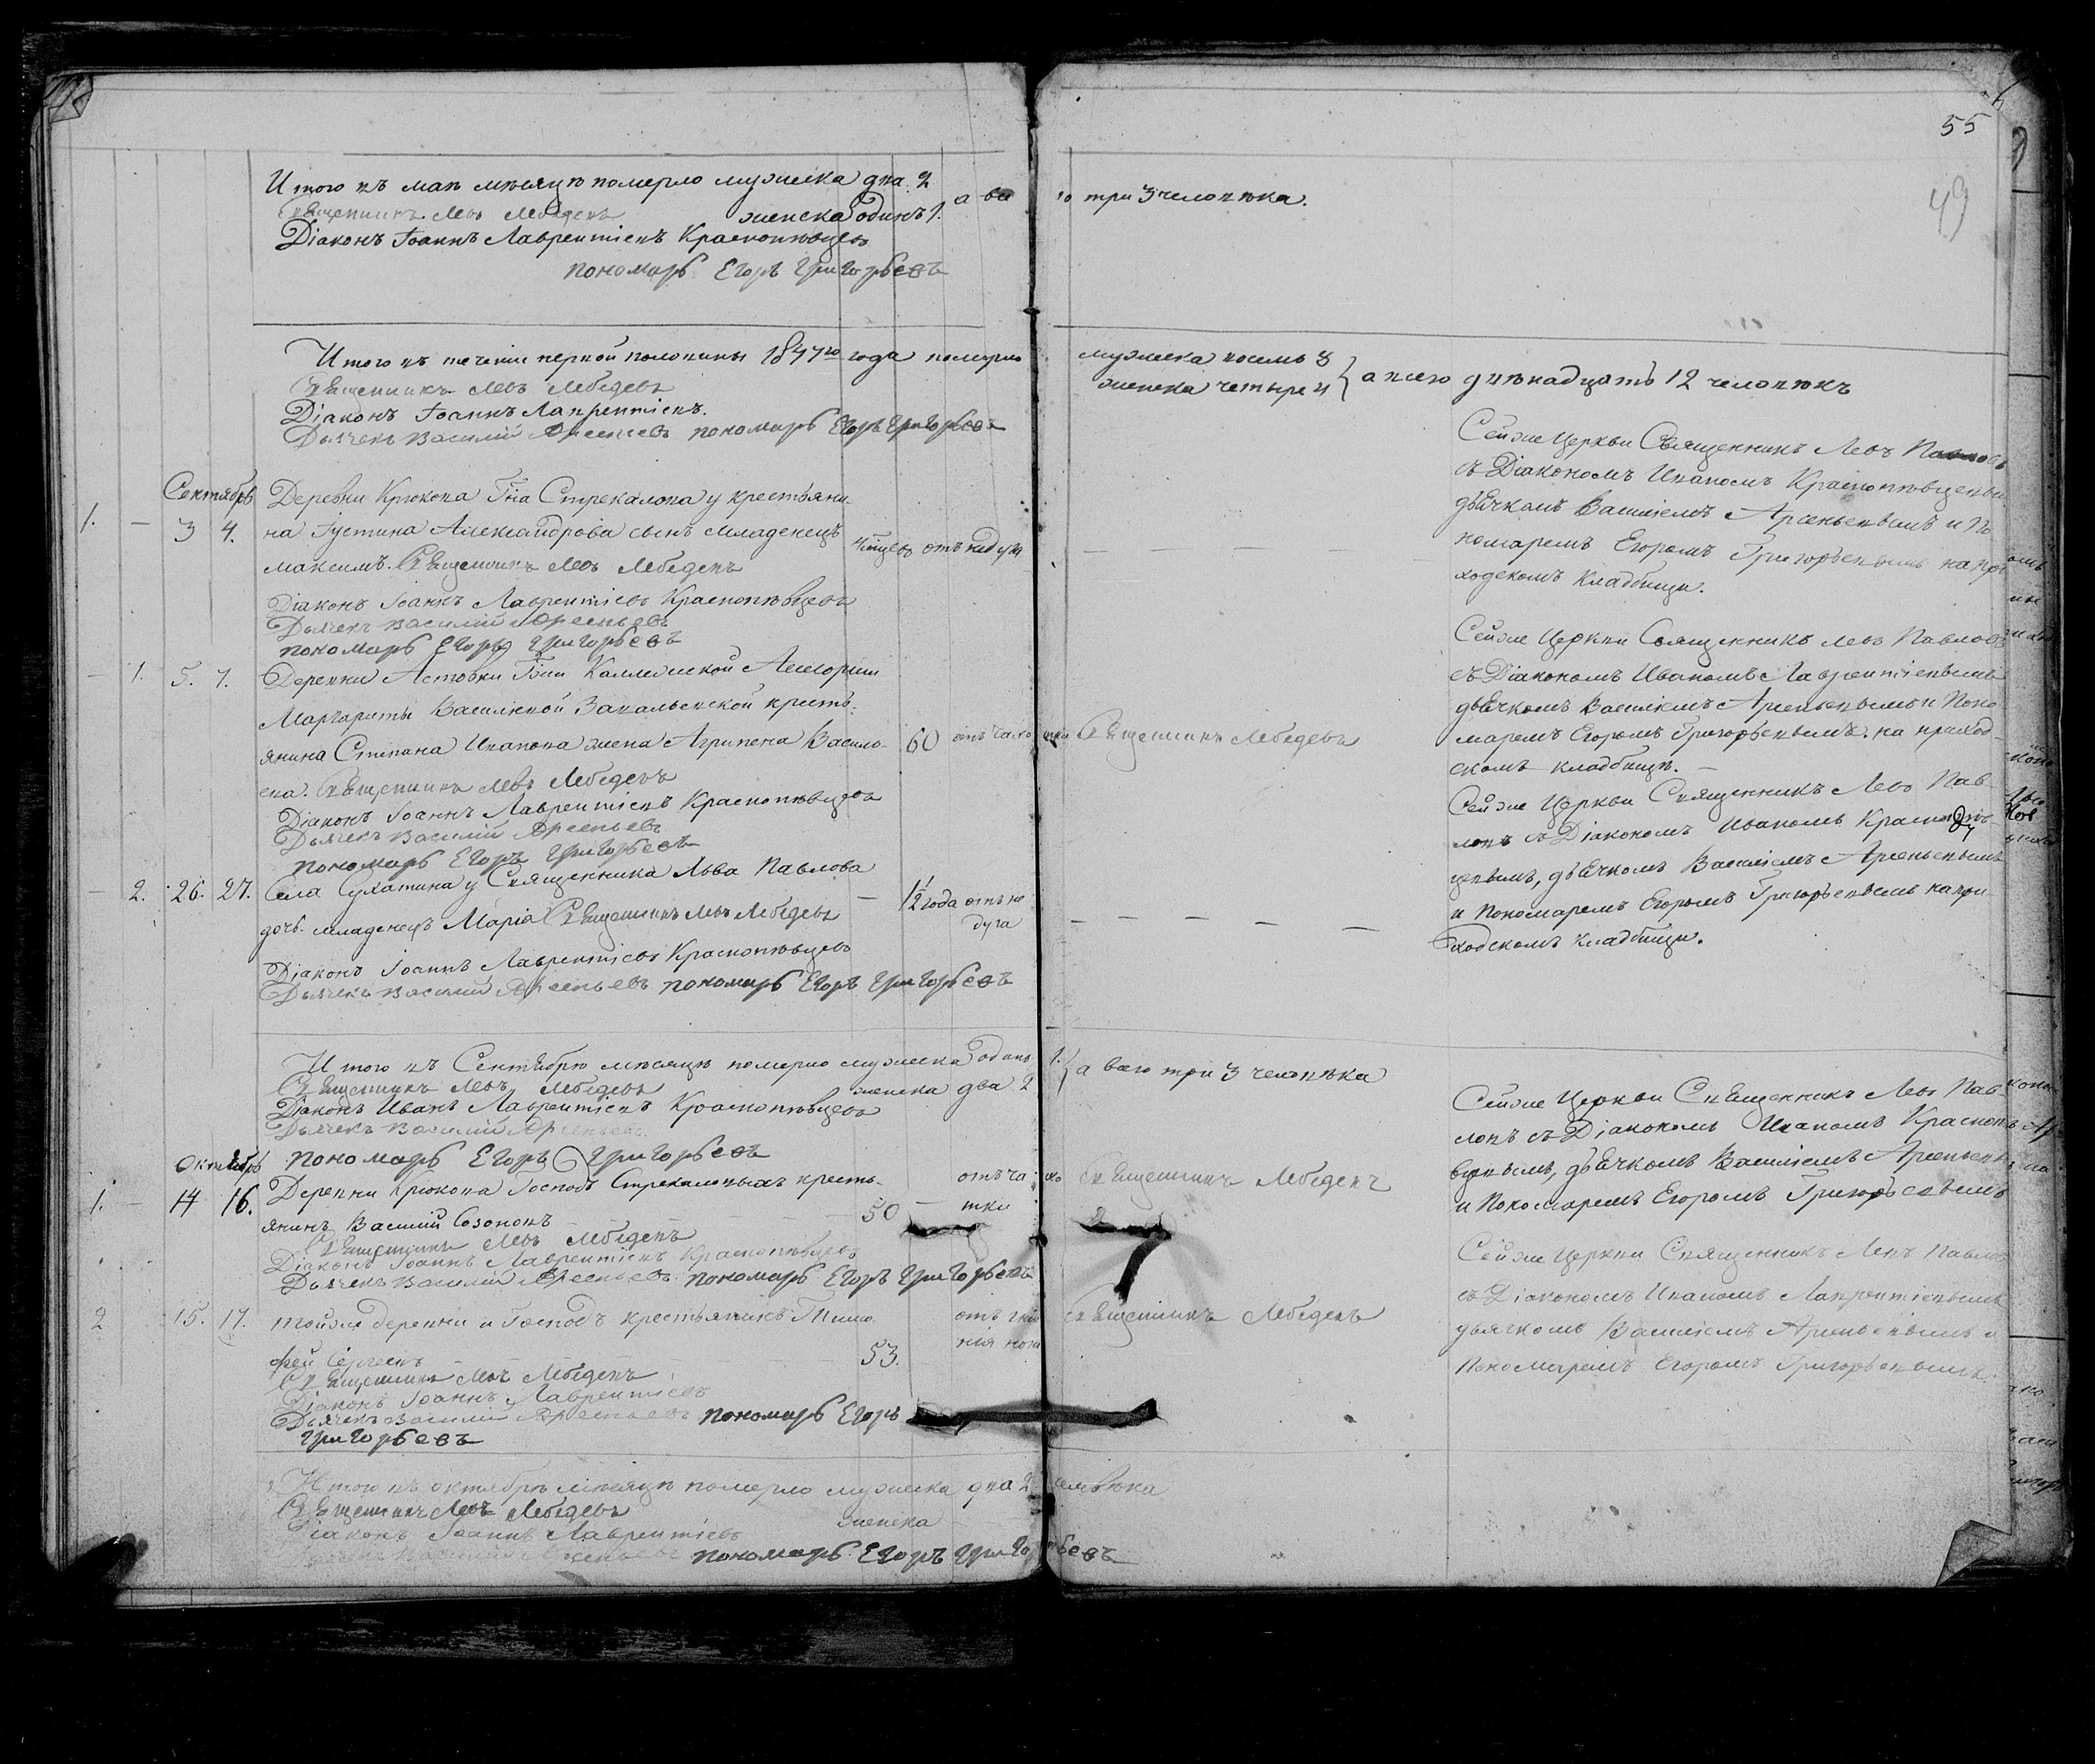 55
49
Итого въ маѣ мѣсяцѣ померло мужеска два. 2
женска одинъ 1. а все го три 3 человѣка.
Священникъ Левъ Лебедевъ
Діаконъ Іоаннъ Лаврентіевъ Краснопѣвцевъ
пономарь Егоръ Григорьевъ
Итого въ теченіи первой половины 1847го года померло мужеска восемь 8
женска четыре 4 } а всего двѣнадцать 12 человѣкъ
Священникъ Левъ Лебедевъ
Діаконъ Іоаннъ Лаврентіевъ.
Дьячекъ Василий Арсеньевъ пономарь Егоръ Григорьевъ
Сентябрь
1. — 3 4.
Деревни Крюкова Гна Стрекалова у крестьяни
на Густина Александрова сынъ младенецъ
Максимъ. Священникъ Левъ Лебедевъ
отъ недуга
Діаконъ Іоаннъ Лаврентіевъ Краснопѣвцевъ
Дьячекъ Василий Арсеньевъ
пономарь Егоръ Григорьевъ
Сейже Церкви Священникъ Левъ Павловъ
съ Діакономъ Иваномъ Краснопѣвцевы
дьячкомъ Василіемъ Арсеньевымъ и По
номаремъ Егоромъ Григорьевымъ на при
ходскомъ кладбищи.
— 1. 5. 7.
Деревни Астовки Гжи Коллежской Асесорши
Маргариты Василіевой Закальской кресть-
янина Степана Иванова жена Агрипена Василь-
ева. Священникъ Левъ Лебедевъ
60 отъ часотки Священникъ Лебедевъ
Діаконъ Іоаннъ Лаврентіевъ Краснопѣвцевъ
Дьячекъ Василий Арсеньевъ
пономарь Егоръ Григорьевъ
Сейже Церкви Священникъ Левъ Павловъ
съ Діакономъ Иваномъ Лаврентіевымъ
дьячкомъ Василіемъ Арсеньевымъ и Поно
маремъ Егоромъ Григорьевымъ. на приход-
скомъ кладбищѣ.
— 2. 26. 27.
Села Сухатина у Священника Льва Павлова
дочь младенецъ Марія Священникъ Левъ Лебедевъ
— 1/2 года отъ не
дуга
Діаконъ Іоаннъ Лаврентіевъ Краснопѣвцевъ
Дьячекъ Василий Арсеньевъ пономарь Егоръ Григорьевъ
Сейже Церкви Священникъ Левъ Пав-
ловъ съ Діакономъ Иваномъ Краснопѣв
цевымъ, дьячкомъ Василіемъ Арсеньевымъ
и Пономаремъ Егоромъ Григорьевымъ на при
ходскомъ кладбищи.
Итого въ Сентябрѣ мѣсяцѣ померло мужеска одинъ 1.
женска два 2 } а всего три 3 человѣка
Священникъ Левъ Лебедевъ
Діаконъ Иванъ Лаврентіевъ Краснопѣвцевъ
Дьячекъ Василий Арсеньевъ.
пономарь Егоръ Григорьевъ
Октябрь
1. — 14 16.
Деревни Крюкова Господъ Стрекаловыхъ кресть-
янинъ Василий Созоновъ — 50 —
отъ часо
тки
Священникъ Лебедевъ
Священникъ Левъ Лебедевъ
Діаконъ Іоаннъ Лаврентіевъ Краснопѣвцевъ
Дьячекъ Василий Арсеньевъ. пономарь Егоръ Григорьевъ
Сейже Церкви Священникъ Левъ Пав-
ловъ съ Діакономъ Иваномъ Краснопѣ
вцевымъ, дьячкомъ Василіемъ Арсеньев
и Пономаремъ Егоромъ Григорьевымъ
2 15. 17.
тойже деревни и Господъ крестьянинъ Тимо
фей Сергеевъ 53.
отъ гніе
нія нога
Священникъ Лебедевъ
Священникъ Левъ Лебедевъ
Діаконъ Іоаннъ Лаврентіевъ
Дьячекъ Василий Арсеньевъ пономарь Егоръ
Григорьевъ
Сейже Церкви Священникъ Левъ Павлов
съ Діакономъ Иваномъ Лаврентіевымъ
дьячкомъ Василіемъ Арсеньевымъ и
Пономаремъ Егоромъ Григорьевымъ.
Итого въ октябрѣ мѣсяцѣ померло мужеска два 2 человѣка
женска —
Священникъ Левъ Лебедевъ
Діаконъ Іоаннъ Лаврентіевъ
Дьячекъ Василий Арсеньевъ пономарь Егоръ Григорьевъ